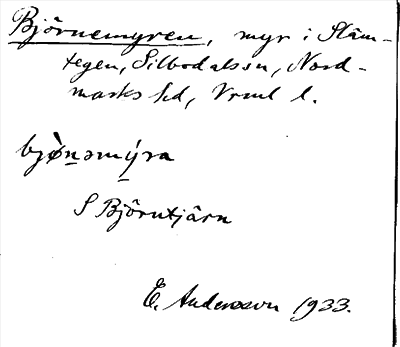 Björnemyren, myr i Släm-
tegen, Silbodalssn, Nord-
marks hd, Vrml l.
bjö̀nəmýra
S Björntjärn
E. Andersson 1933.